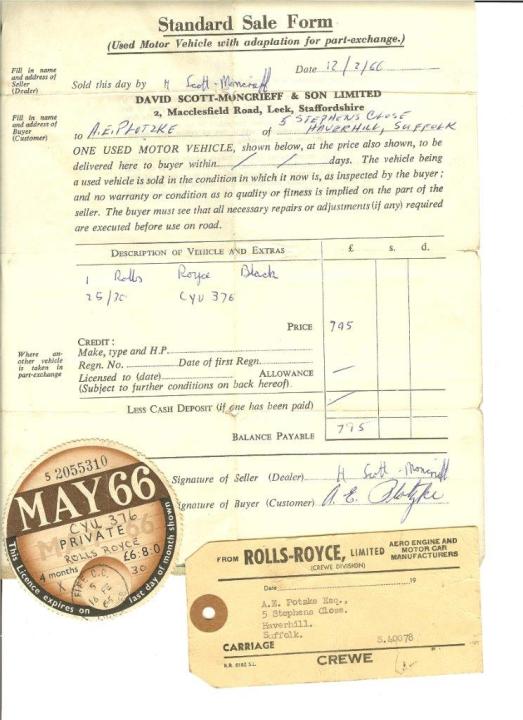 Standard Sale Form
(Used Motor Vehicle with adaptation for part-exchange.)
Date 12/2/66
Fill in name
and address of
Seller
(Dealer)
Sold this day by H Scott-Moncrieff
DAVID SCOTT-MONCRIEFF & SON LIMITED
2, Macclesfield Road, Leek, Staffordshire
Fill in name
and address of
Buyer
(Customer)
to A.E. Plotzke of 5 STEPHENS CLOSE
HAVERHILL, SUFFOLK
ONE USED MOTOR VEHICLE, shown below, at the price also shown, to be
delivered here to buyer within / / days. The vehicle being
a used vehicle is sold in the condition in which it now is, as inspected by the buyer;
and no warranty or condition as to quality or fitness is implied on the part of the
seller. The buyer must see that all necessary repairs or adjustments (if any) required
are executed before use on road.
DESCRIPTION OF VEHICLE AND EXTRAS £ s. d.
1 Rolls Royce Black
25/30 CYU 376
PRICE 795
Where an-
other vehicle
is taken in
part-exchange
CREDIT:
Make, type and H.P.
Regn. No. Date of first Regn.
Licensed to (date) ALLOWANCE
(Subject to further conditions on back hereof).
LESS CASH DEPOSIT (if one has been paid)
BALANCE PAYABLE 795
Signature of Seller (Dealer) H Scott-Moncrieff
Signature of Buyer (Customer) A. E. Plotzke
S 2055310
MAY 66
CYU 376
PRIVATE
ROLLS ROYCE
4 months £6:8:0
30
FIFE C.C.
16 FE
This Licence expires on last day of month shown
FROM ROLLS-ROYCE, LIMITED AERO ENGINE AND
MOTOR CAR
MANUFACTURERS
(CREWE DIVISION)
Date 19
A.E. Potzke Esq.,
5 Stephens Close.
Haverhill.
Suffolk.
S.40078
CARRIAGE
CREWE
R.R. 8182 S.L.